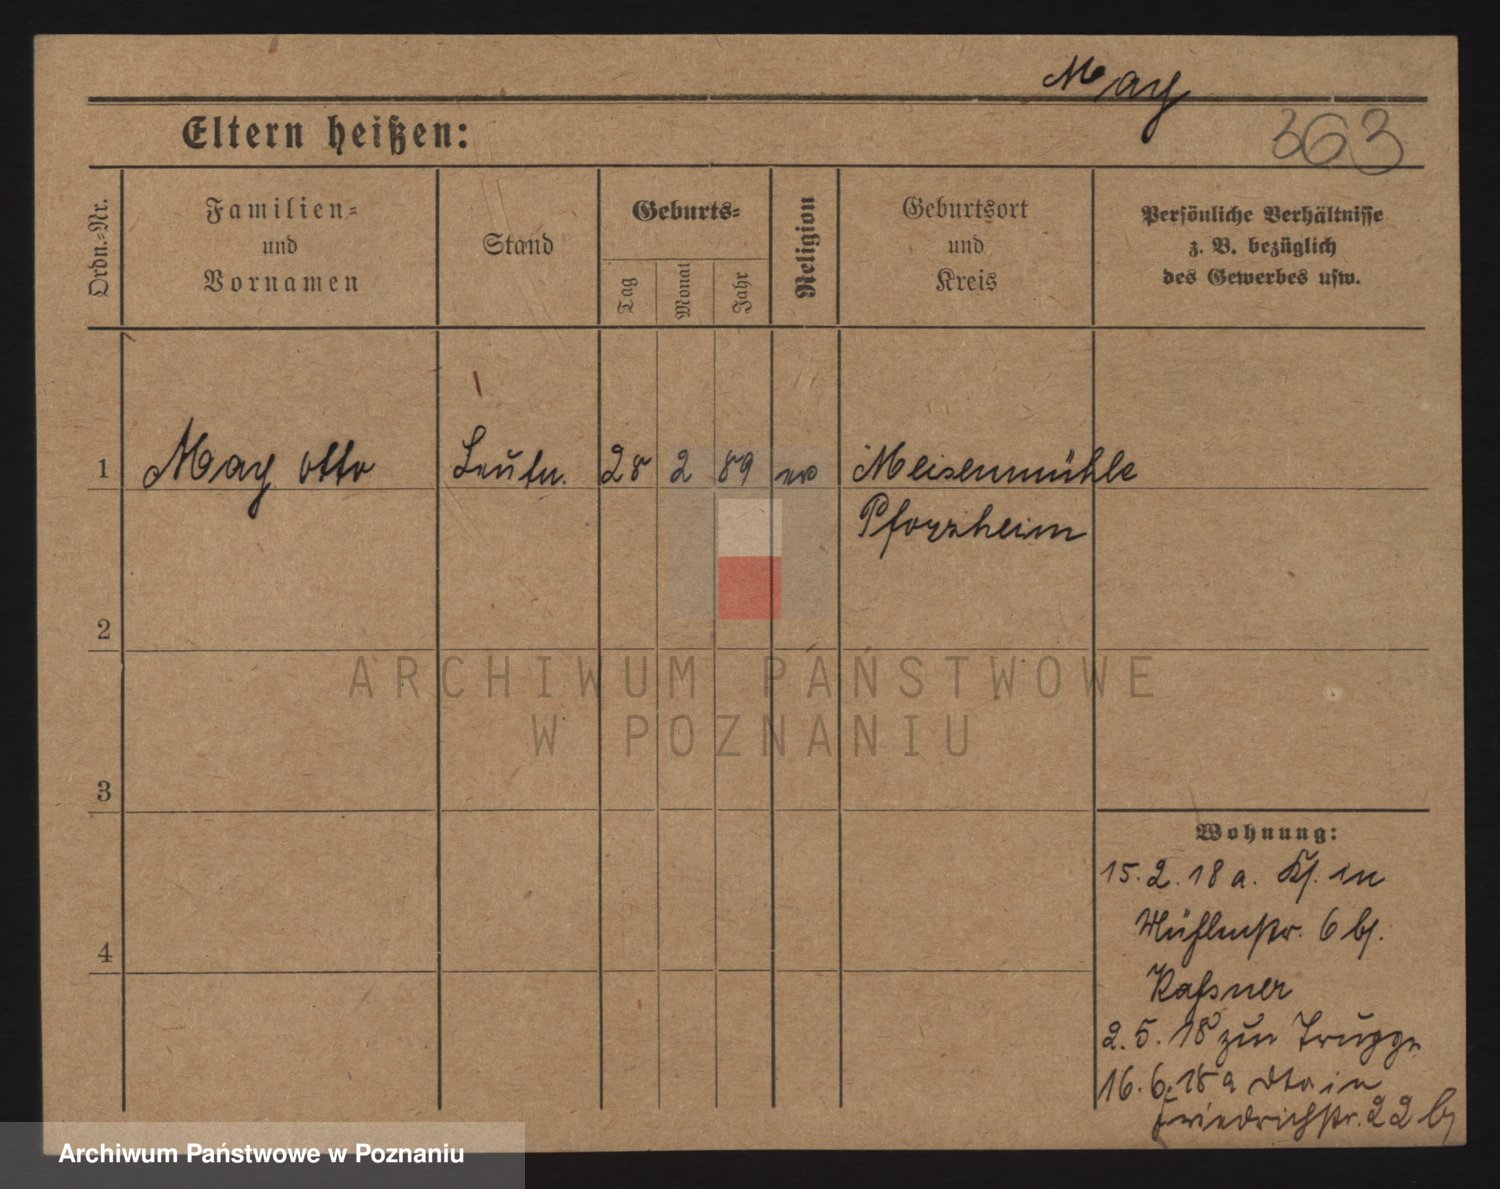 May
363
Eltern heißen:
Ordn.-Nr.
Familien-
und
Vornamen
Stand
Geburts-
Tag
Monat
Jahr
Religion
Geburtsort
und
Kreis
Persönliche Verhältnisse
z. B. bezüglich
des Gewerbes usw.
1
May Otto
Leutn.
28
2
89
ev
Meisenmühle
Pforzheim
2
ARCHIWUM PAŃSTWOWE
W POZNANIU
3
4
Wohnung:
15.2.18 a. in
Mühlenstr. 6 bj.
2.5.18 zur Truppe
16.6.18 a dto in
Friedrichstr. 22 bj
Archiwum Państwowe w Poznaniu